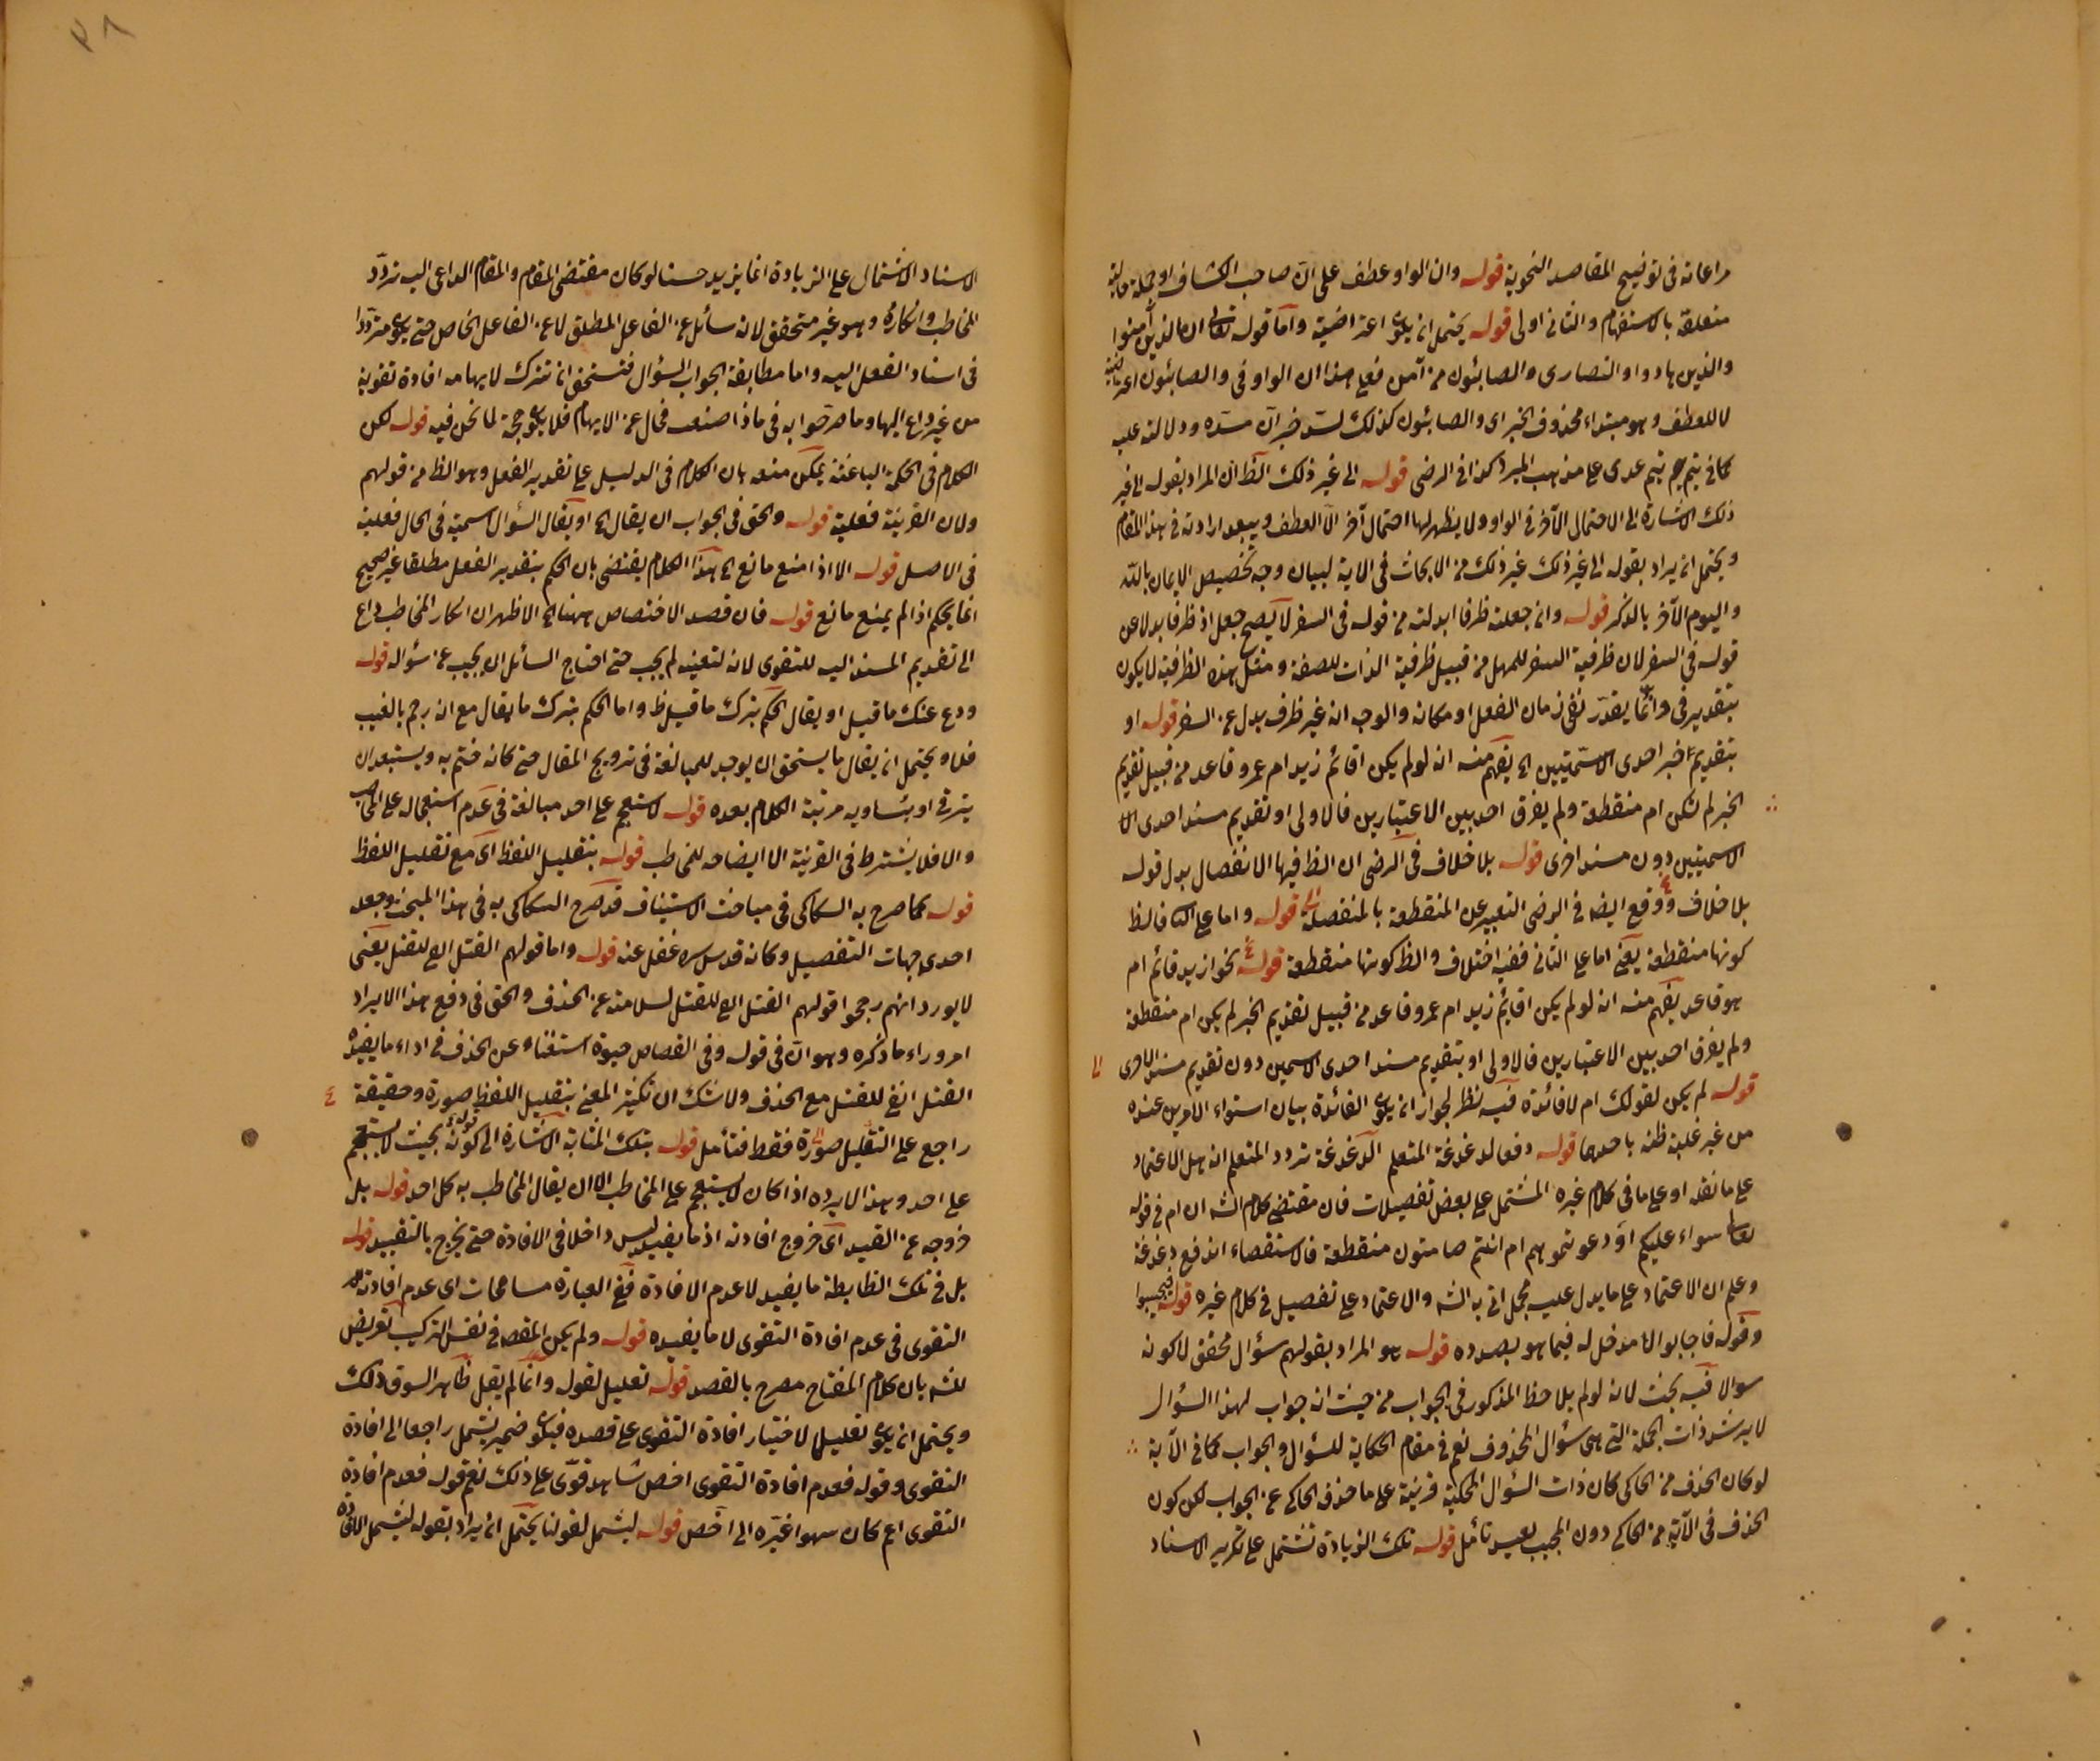 مراعاته فى توضيح المقاصد النحوية قوله وان الواو عطف على ان صاحب الكشاف او جملة حالية
متعلقة بالاستفهام والثانى اولى قوله يحتمل ان يكون اعتراضية واما قوله تعالى ان الذين آمنوا
والذين هادوا والنصارى والصابئون من آمن فعلى هذا ان الواو فى والصابئون اعتراضية
لا للعطف وهو مبتداء محذوف الخبر اى والصابئون كذلك لسد خبر ان مسده ودلالته عليه
كما فى تيم تيم عدى على مذهب المبرد كذا فى الرضى قوله الى غير ذلك الظ ان المراد بقوله الى غير
ذلك الاشارة الى الاحتمال الآخر فى الواو ولا يظهر لها احتمال آخر الا العطف ويبعد ارادته فى هذا المقام
ويحتمل ان يراد بقوله الى غير ذلك غير ذلك من الابحاث فى الاية لبيان وجه تخصيص الايمان بالله
واليوم الآخر بالذكر قوله وان جعلته ظرفا ابدلته من قوله فى السفر لا يصح جعل اذ ظرفا بدلا عن
قوله فى السفر لان ظرفية السفر للمهل من قبيل ظرفية الذات للصفة ومثل هذه الظرفية لا يكون
بتقدير فى وانما يقدر نفى زمان الفعل او مكانه والوجه انه غير ظرف بدل عن السفر قوله او
بتقديم خبر احدى الاسميتين اه يفهم منه انه لو لم يكن اقائم زيد ام عمرو قاعد من قبيل تقديم
الخبر لم تكن ام منقطعة ولم يفرق احد بين الاعتبارين فالاولى او تقديم مسند احدى الا
الاسميتين دون مسند اخرى قوله بلا خلاف فى الرضى ان الظ فيها الانفصال بدل قوله
بلا خلاف ووقع ايضا فى الرضى التعبير عن المنقطعة بالمنفصلة قوله واما على الثا فالظ
كونها منقطعة يعنى اما على الثانى ففيه اختلاف والظ كونها منقطعة قوله نحو ازيد قائم ام
هو قاعد يفهم منه انه لو لم يكن اقائم زيد ام عمرو قاعد من قبيل تقديم الخبر لم يكن ام منقطعة
ولم يفرق احد بين الاعتبارين فالاولى او بتقديم مسند احدى الاسمين دون تقديم مسند الاخرى
قوله لم يكن لقولك ام لا فائدة فيه نظر لجواز ان يكون الفائدة بيان استواء الامرين عنده
من غير غلبة ظنه باحدهما قوله دفعا لدغدغة المتعلم الدغدغة تردد المتعلم انه هل الاعتماد
على ما نقله او على ما فى كلام غيره المشتمل على بعض تفصيلات فان مقتضى كلام الشه ان ام فى قوله
تعالى سواء عليكم أدعوتموهم ام انتم صامتون منقطعة فالاستقصاء اندفع دغدغة
وعلم ان الاعتماد على ما يدل عليه مجمل اتى به الشه والاعتماد على تفصيل فى كلام غيره قوله فيجيبوا
وقوله فاجابوا لا مدخل له فيما هو بصدده قوله هو المراد بقولهم سؤال محقق لا كونه
سوالا فيه بحث لانه لو لم يلاحظ المذكور فى الجواب من حيث انه جواب لهذا السؤال
لا يرشد ذات الجملة التى هى سؤال المحذوف نعم فى مقام الحكاية للسؤال والجواب كما فى الآية
لو كان الحذف من الحاكى كان ذات السؤال المحكية قرينة على ما حذف الحاكى عن الجواب لكن كون
الحذف فى الآية من الحاكى دون المجيب بعيد تأمل قوله تلك الزيادة تشتمل على تكرير الاسناد
الاسناد الاشتمال على الزيادة انما يزيد حسنا لو كان مقتضى المقام والمقام الداعى اليه تردد
المخاطب وانكاره وهو غير متحقق لانه سائل عن الفاعل المطلق لا عن الفاعل الخاص حتى يكون مترددا
فى اسناد الفعل اليه واما مطابقة الجواب السؤال فتستحق ان تترك لايهامه افادة تقوية
من غير داع اليها وما صرحوا به فى ماذا صنعت فخال عن الايهام فلا يكون حجة لما نحن فيه قوله لكن
الكلام فى الحكمة الباعثة يمكن منعه بان الكلام فى الدليل على تقدير الفعل وهو الظ من قولهم
ولان القرينة فعلية قوله والحق فى الجواب ان يقال اه او يقال السؤال اسمية فى الحال فعلية
فى الاصل قوله الا اذا منع مانع اه هذا الكلام يقتضى بان الحكم بتقدير الفعل مطلقا غير صحيح
انما يحكم اذا لم يمنع مانع قوله فان قصد الاختصاص ههنا اه الاظهر ان انكار المخاطب داع
الى تقديم المسند اليه للتقوى لانه لتعينه لم يجب حتى احتاج السائل ان يجيب عن سؤاله قوله
ودع عنك ما قيل او يقال الحكم بترك ما قيل ظ واما الحكم بترك ما يقال مع انه رجم بالغيب
فلا ويحتمل ان يقال ما يستحق ان يوجد للمبالغة فى ترويج المقال حتى كانه ختم به ويستبعد ان
يترقى او يساويه مرتبة الكلام بعده قوله لا ستهجم على احد مبالغة فى عدم استعماله على المخاطب
والا فلا يشترط فى القرينة الا ايضاحه للمخاطب قوله بتقليل اللفظ اى مع تقليل اللفظ
قوله كما صرح به السكاكى فى مباحث الاستيناف قد صرح السكاكى به فى هذا المبحث وجعله
احدى جهات التفصيل وكانه قدس سره غفل عنه قوله واما قولهم القتل انفى للقتل يعنى
لا يورد انهم رجحوا قولهم القتل انفى للقتل لسلامته عن الحذف والحق فى دفع هذا الايراد
امر وراء ما ذكره وهو ان فى قوله وفى القصاص حيوة استغناء عن الحذف فى اداء ما يفيده
القتل انفى للقتل مع الحذف ولا شك ان تكثير المعنى بتقليل اللفظ صورة وحقيقة
راجع على التقليل صورة فقط فتأمل قوله بتلك المثابة الاشارة الى كونه بحيث لا يستهجم
على احد وهذا لا يرده اذا كان لا يستهجم على المخاطب الا ان يقال المخاطب به كل احد قوله بل
خروجه عن القيد اى خروج افادته اذ ما يفيد ليس داخلا فى الافادة حتى يخرج بالتقييد قوله
بل فى تلك الظابطة ما يفيد لا عدم الافادة ففى العبارة مسامحات اى عدم افادته
التقوى فى عدم افادة التقوى لا ما يفيده قوله ولم يكن المقصد فى نفس التركيب تعريض
للشه بان كلام المفتاح مصرح بالقصد قوله تعليل لقوله وانما لم يقل ظاهر السوق ذلك
ويحتمل ان يكون تعليلا لاختيار افادة التقوى على قصده فيكون ضمير يشمل راجعا الى افادة
التقوى وقوله فعدم افادة التقوى اخص شاهد قوى على ذلك نعم قوله فعدم افادة
التقوى اعم كان سهوا غيره الى اخص قوله ليشمل لقولنا يحتمل ان يراد بقوله ليشمل افادة